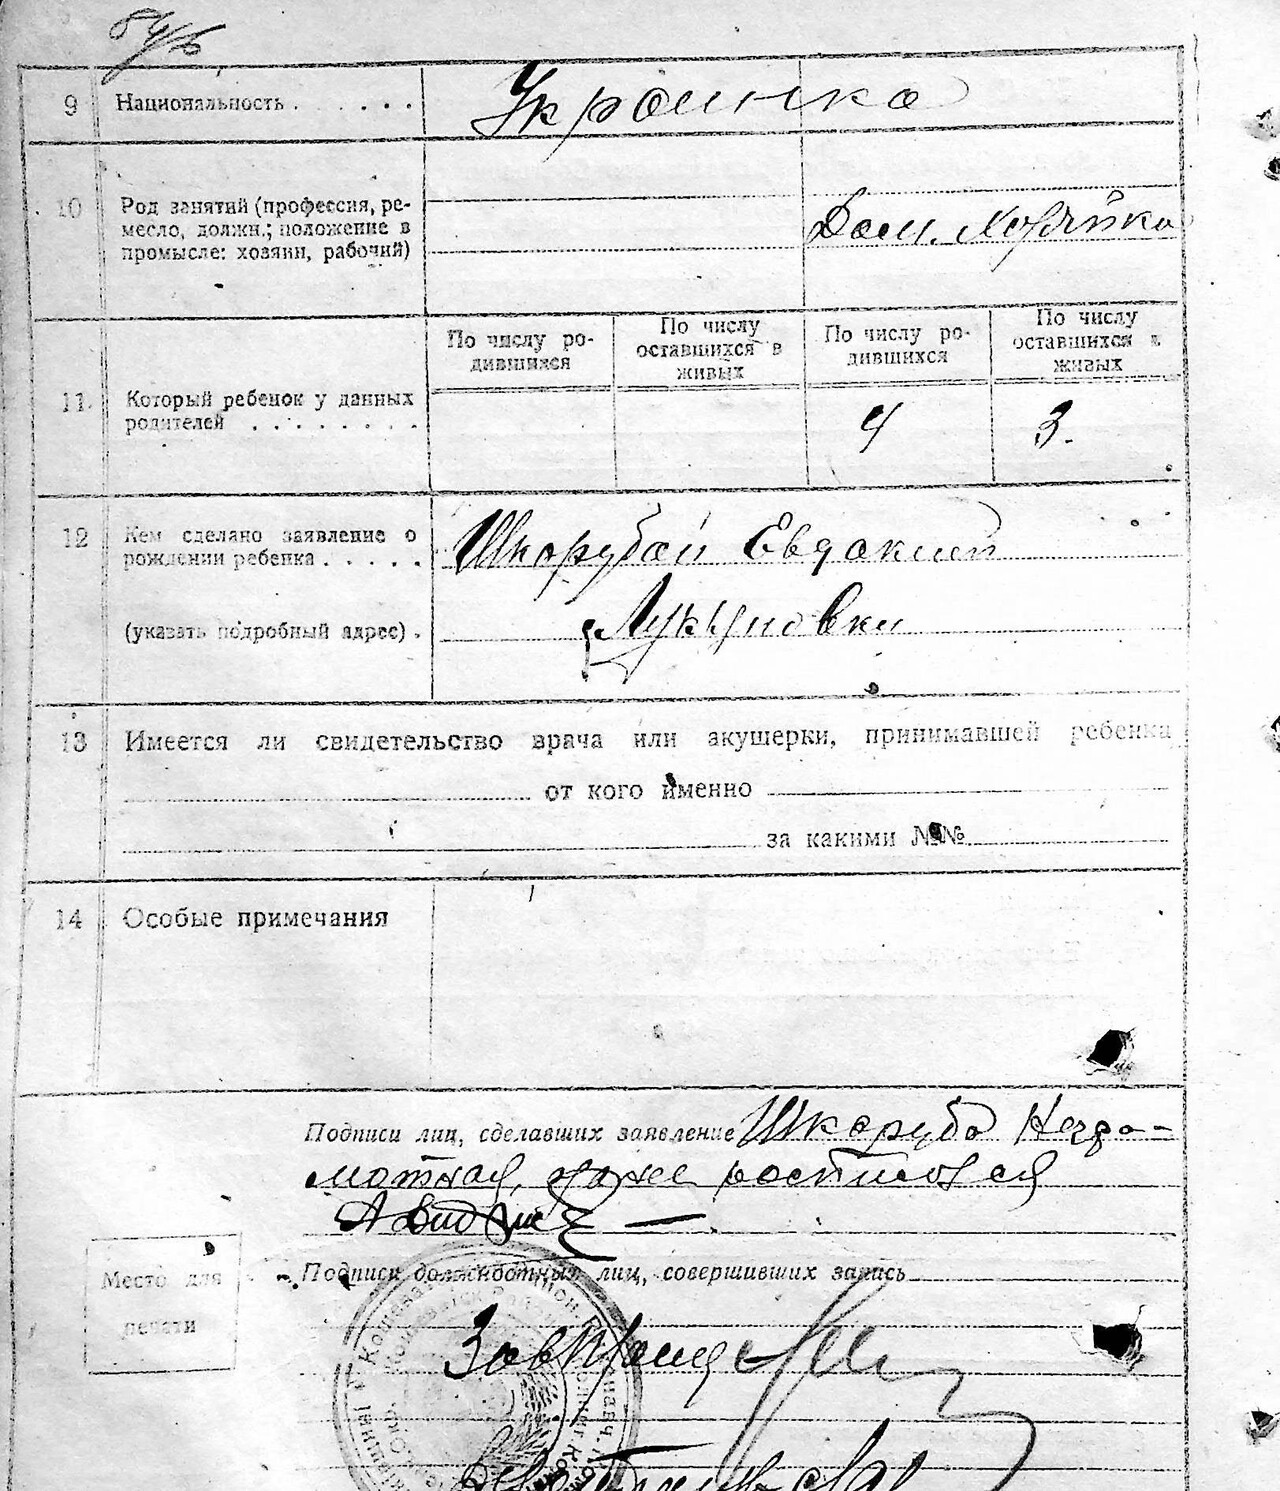 9 Национальность Украинка
10 Род занятий (профессия, ре-
месло, должн.; положение в
промысле: хозяин, рабочий)
Дом. Хозяйка
По числу ро-
дившихся
По числу
оставшихся в
живых
По числу ро-
дившихся
По числу
оставшихся в
живых
11 Который ребенок у данных
родителей
4 3.
12 Кем сделано заявление о
рождении ребенка
Шкорубой Евдокией
(указать подробный адрес)
13 Имеется ли свидетельство врача или акушерки, принимавшей ребенка
от кого именно
за какими №№
14 Особые примечания
Подписи лиц, сделавших заявление Шкоруба
Место для
печати
Подписи должностных лиц, совершивших запись